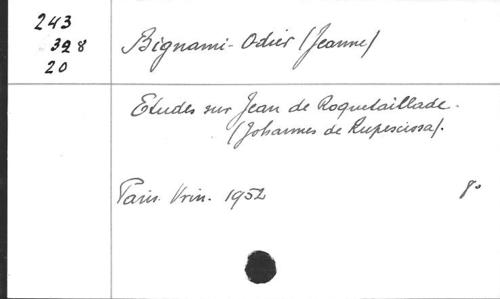 243
328
20
Bignami-Odier (Jeanne)
Etudes sur Jean de Roquetaillade.
(Johannes de Rupescissa).
Paris. Vrin. 1952 8°